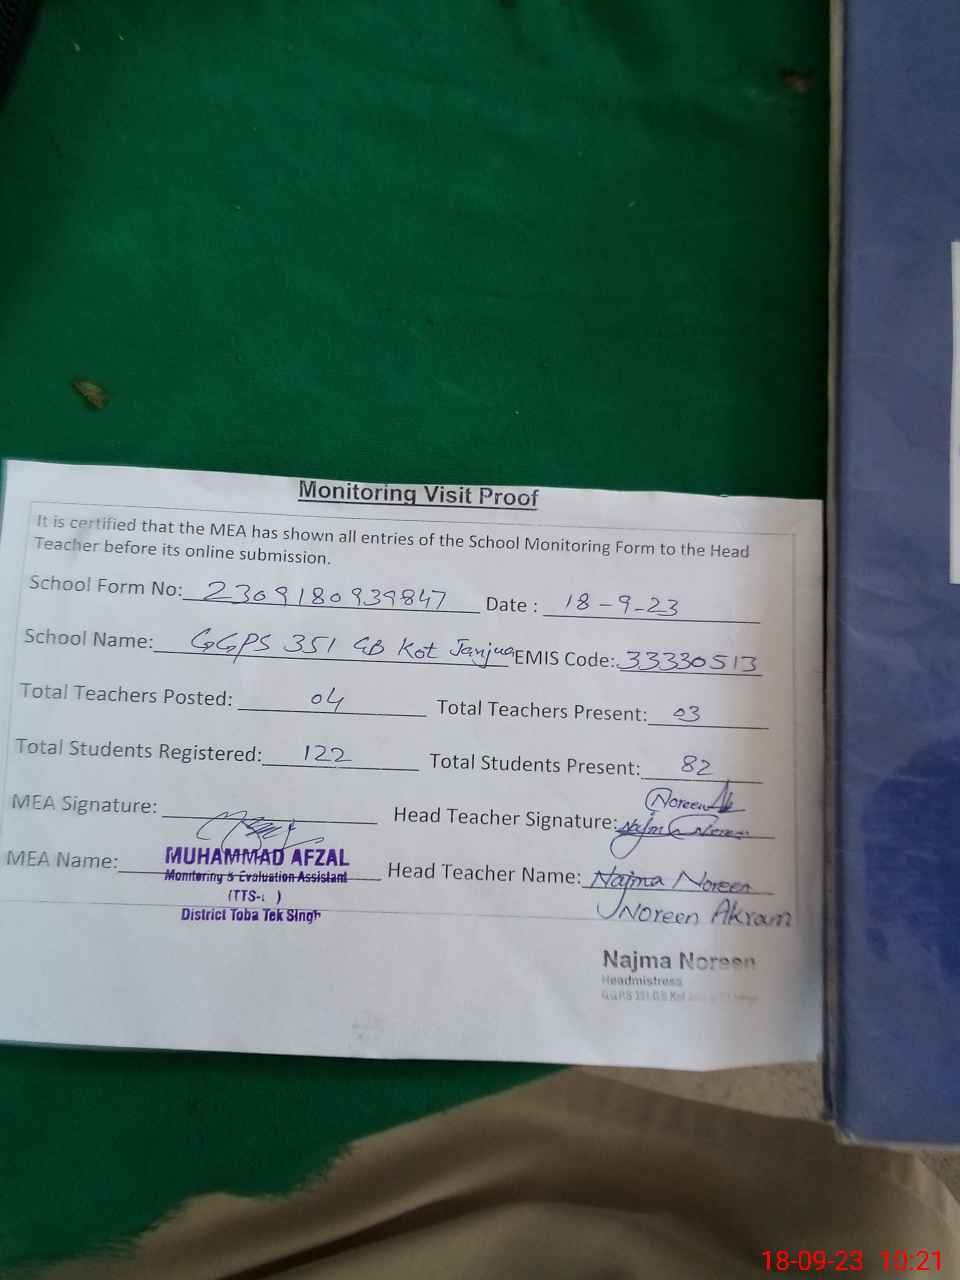 Monitoring Visit Proof
It is certified that the MEA has shown all entries of the School Monitoring Form to the Head
Teacher before its online submission.
School Form No: 2309180939847 Date : 18-9-23
School Name: GGPS 351 GB Kot Janjua EMIS Code: 33330513
Total Teachers Posted: 04 Total Teachers Present: 03
Total Students Registered: 122 Total Students Present: 82
Noreen Ak
MEA Signature: Head Teacher Signature: Najma Noreen
MEA Name: MUHAMMAD AFZAL Head Teacher Name: Najma Noreen
Monitoring & Evaluation Assistant
(TTS- )
District Toba Tek Singh
Noreen Akram
Najma Noreen
Headmistress
18-09-23 10:21